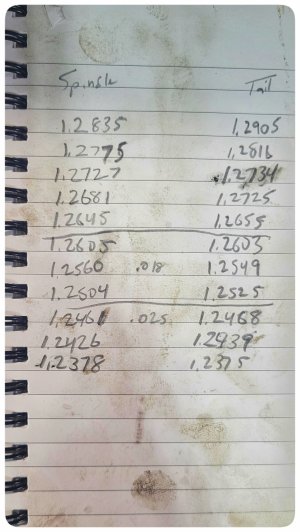 Spindle Tail
1.2835 1.2905
1.2775 1.2816
1.2727 1.2734
1.2681 1.2725
1.2645 1.2655
1.2605 1.2603
1.2560 .018 1.2549
1.2504 1.2525
1.2461 .025 1.2468
1.2426 1.2439
1.2378 1.2375